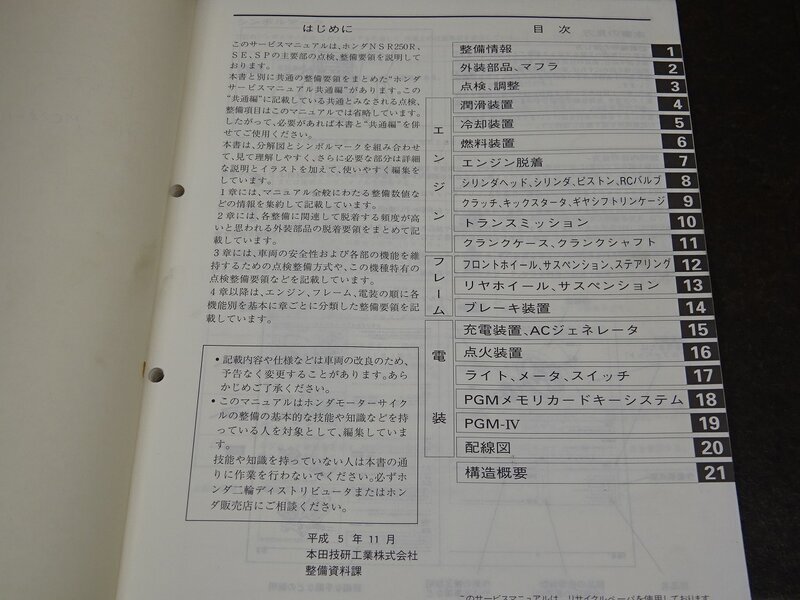 はじめに
このサービスマニュアルは、ホンダNSR250R、
SE、SPの主要部の点検、整備要領を説明して
おります。
本書と別に共通の整備要領をまとめた“ホンダ
サービスマニュアル共通編”があります。この
“共通編”に記載している共通とみなされる点検、
整備項目はこのマニュアルでは省略しています。
したがって、必要があれば本書と“共通編”を併
せてご使用ください。
本書は、分解図とシンボルマークを組み合わせ
て、見て理解しやすく、さらに必要な部分は詳細
な説明とイラストを加えて、使いやすく編集を
しています。
1章には、マニュアル全般にわたる整備数値な
どの情報を集約して記載しています。
2章には、各整備に関連して脱着する頻度が高
いと思われる外装部品の脱着要領をまとめて記
載しています。
3章には、車両の安全性および各部の機能を維
持するための点検整備方式や、この機種特有の
点検整備要領などを記載しています。
4章以降は、エンジン、フレーム、電装の順に各
機能別を基本に章ごとに分類した整備要領を記
載しています。
• 記載内容や仕様などは車両の改良のため、
予告なく変更することがあります。あら
かじめご了承ください。
• このマニュアルはホンダモーターサイク
ルの整備の基本的な技能や知識などを持
っている人を対象として、編集していま
す。
技能や知識を持っていない人は本書の通
りに作業を行わないでください。必ずホ
ンダ二輪ディストリビュータまたはホン
ダ販売店にご相談ください。
平成 5 年 11 月
本田技研工業株式会社
整備資料課
目 次
整備情報 1
外装部品、マフラ 2
点検、調整 3
エンジン
潤滑装置 4
冷却装置 5
燃料装置 6
エンジン脱着 7
シリンダヘッド、シリンダ、ピストン、RCバルブ 8
クラッチ、キックスタータ、ギヤシフトリンケージ 9
トランスミッション 10
クランクケース、クランクシャフト 11
フレーム
フロントホイール、サスペンション、ステアリング 12
リヤホイール、サスペンション 13
ブレーキ装置 14
電装
充電装置、ACジェネレータ 15
点火装置 16
ライト、メータ、スイッチ 17
PGMメモリカードキーシステム 18
PGM-Ⅳ 19
配線図 20
構造概要 21
このサービスマニュアルは、リサイクルペーパを使用しております